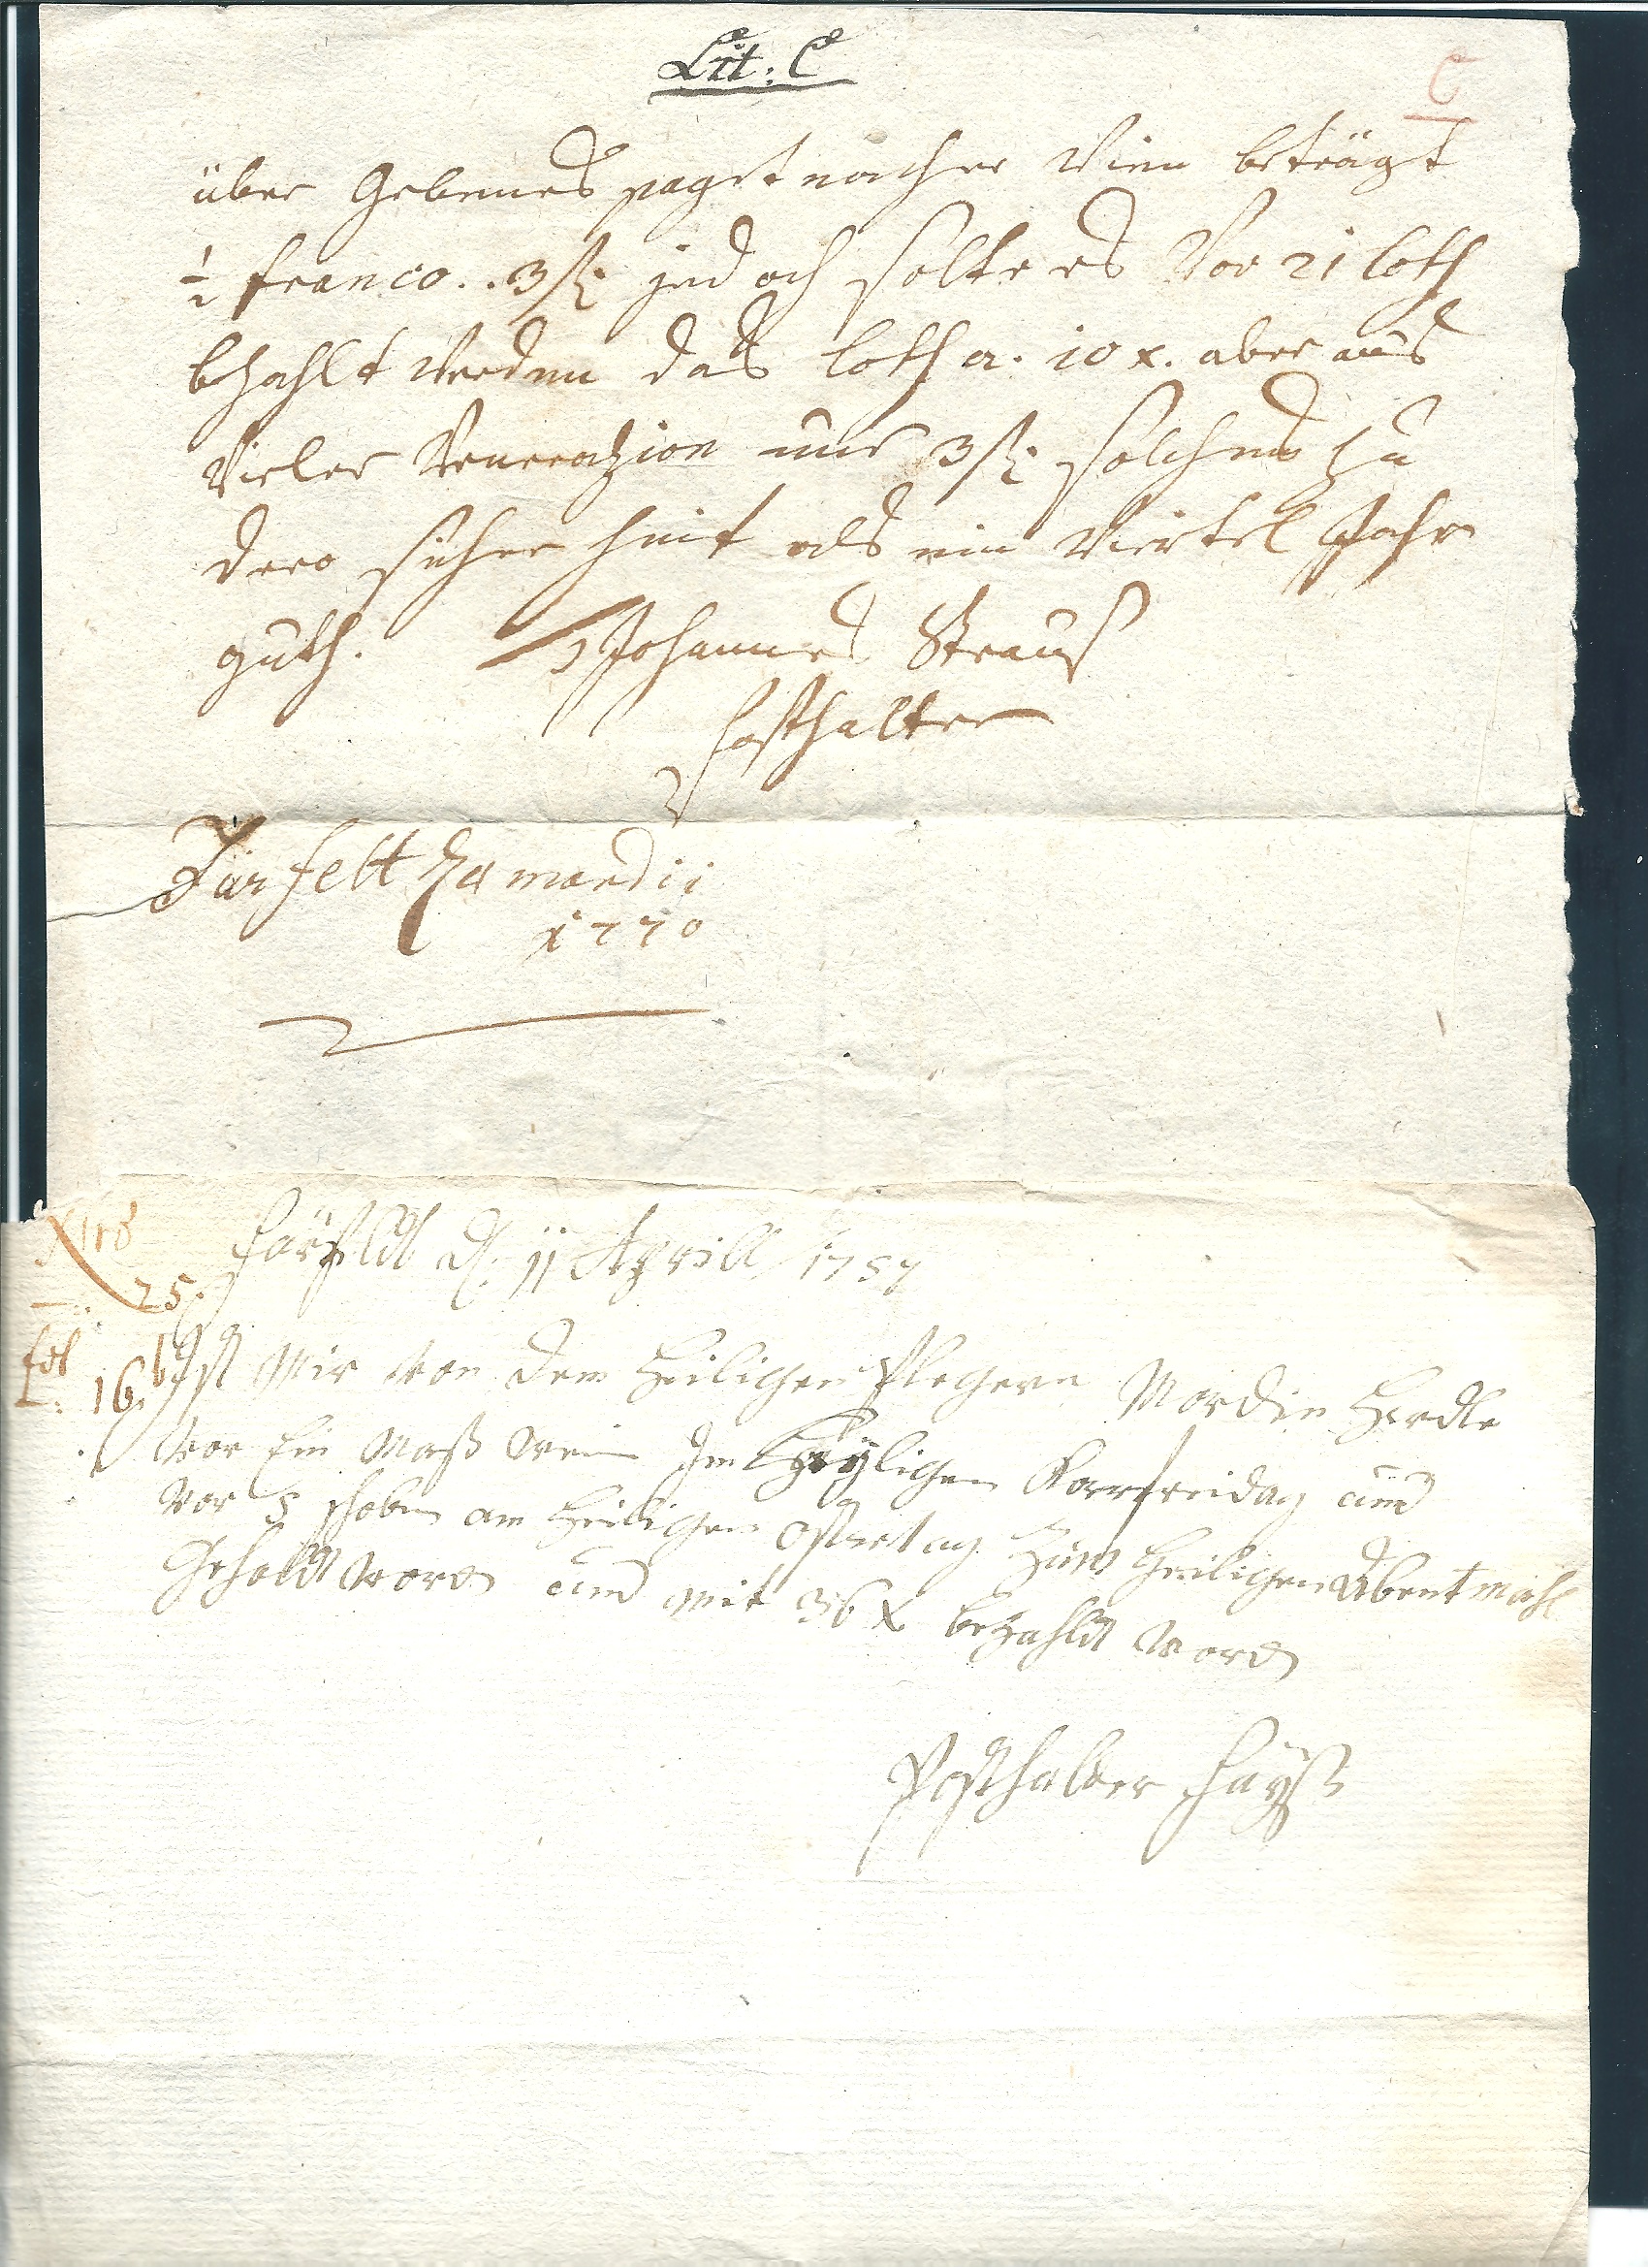 Lit: C
C
über Gebenes paget nacher Wien beträgt
½ franco.. 3 fl: jedoch solte es Vor 21 loth
bezahlt werden das loth a. 10 x. aber aus
Vieler Venerazion nur 3 fl: solches zu
dero sicherheit als ein Viertel Jahr
guth. Johannes Strauß
Posthalter
Fürfelt
1770
Nro
25.
fol
16.b
Fürfeldt d: 11 Aprill 1757
Ist Mir von dem Heiligen Pflegern Mardin
vor Ein Maß wein Im Heyligen Karfreidag und
vor 5 schoben am Heiligen Ostertag zum Heiligen Abentmahl
Geholdt worden und Mit 36 x bezahldt worden
Posthalter